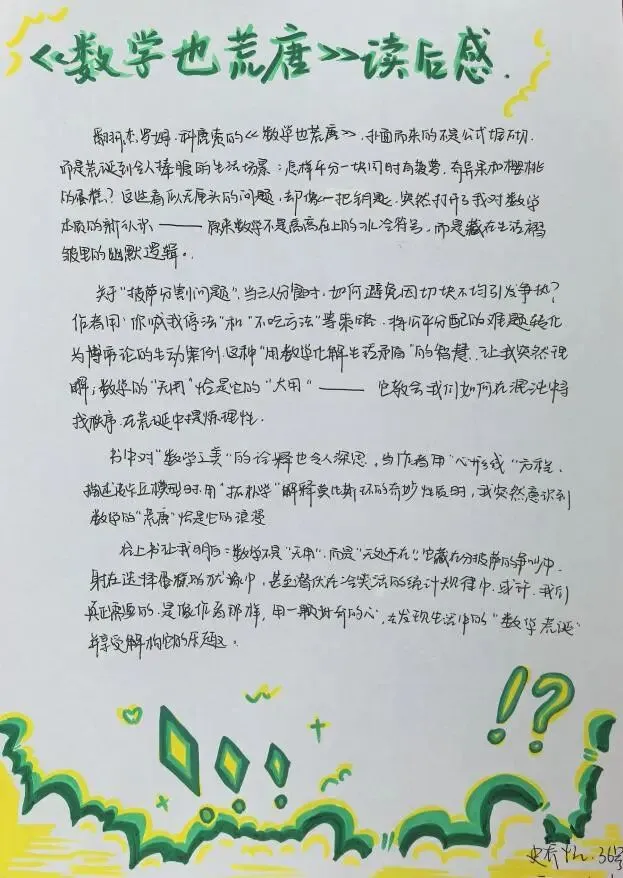 《数学也荒唐》读后感.
翻开杰罗姆·科唐索的《数学也荒唐》,扑面而来的不是公式堆砌,
而是荒诞到令人捧腹的生活场景:怎样平分一块同时有菠萝、奇异果和樱桃
的蛋糕?这些看似无厘头的问题,却像一把钥匙,突然打开了我对数学
本质的新认识——原来数学不是高高在上的冰冷符号,而是藏在生活褶
皱里的幽默逻辑。
关于"披萨分割问题",当三人分食时,如何避免因切块不均引发争执?
作者用"你喊我停法"和"不吃亏法"等策略,将公平分配的难题转化
为博弈论的生动案例.这种"用数学化解生活矛盾"的智慧,让我突然理
解:数学的"无用"恰是它的"大用"——它教会我们如何在混沌中寻
找秩序,在荒诞中提炼理性.
书中对"数学之美"的诠释也令人深思,当作者用"心形线"方程,
描述 丘模型时,用"拓扑学"解释莫比斯环的奇妙性质时,我突然意识到
数学的"荒唐"恰是它的浪漫
合上书让我明白:数学不是"无用",而是"无处不在"!它藏在分披萨的争吵中,
身在选择蛋糕的犹豫中,甚至潜伏在冷笑话的统计规律中,或许,我们
真正需要的,是像作者那样,用一颗好奇的心,去发现生活中的"数学荒诞"
并享受解构它的乐趣。
!?
史 36号